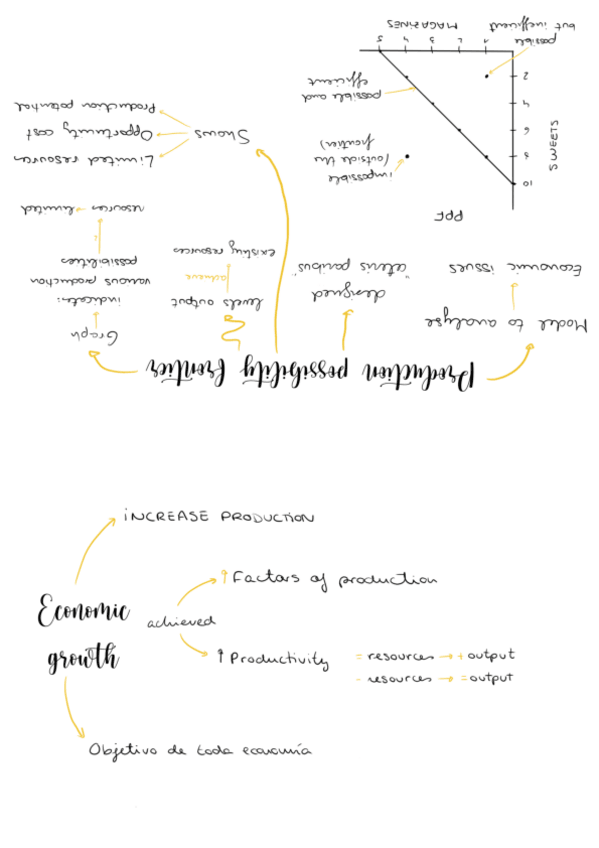 Production possibility frontier
Model to analyse
Economic issues
designed
"ceteris paribus"
levels output
achieve
existing resources
Graph
indicates:
various production
possibilities
resources limited
Shows
Limited resources
Opportunity cost
Production potential
PPF
SWEETS
10
8
6
4
2
1
2
3
4
5
MAGAZINES
impossible
(outside the
frontier)
possible and
efficient
possible
but inefficient
Economic
growth
iNCREASE PRODUCTION
achieved
↑ Factors of production
↑ Productivity
= resources → + output
- resources → = output
Objetivo de toda economía